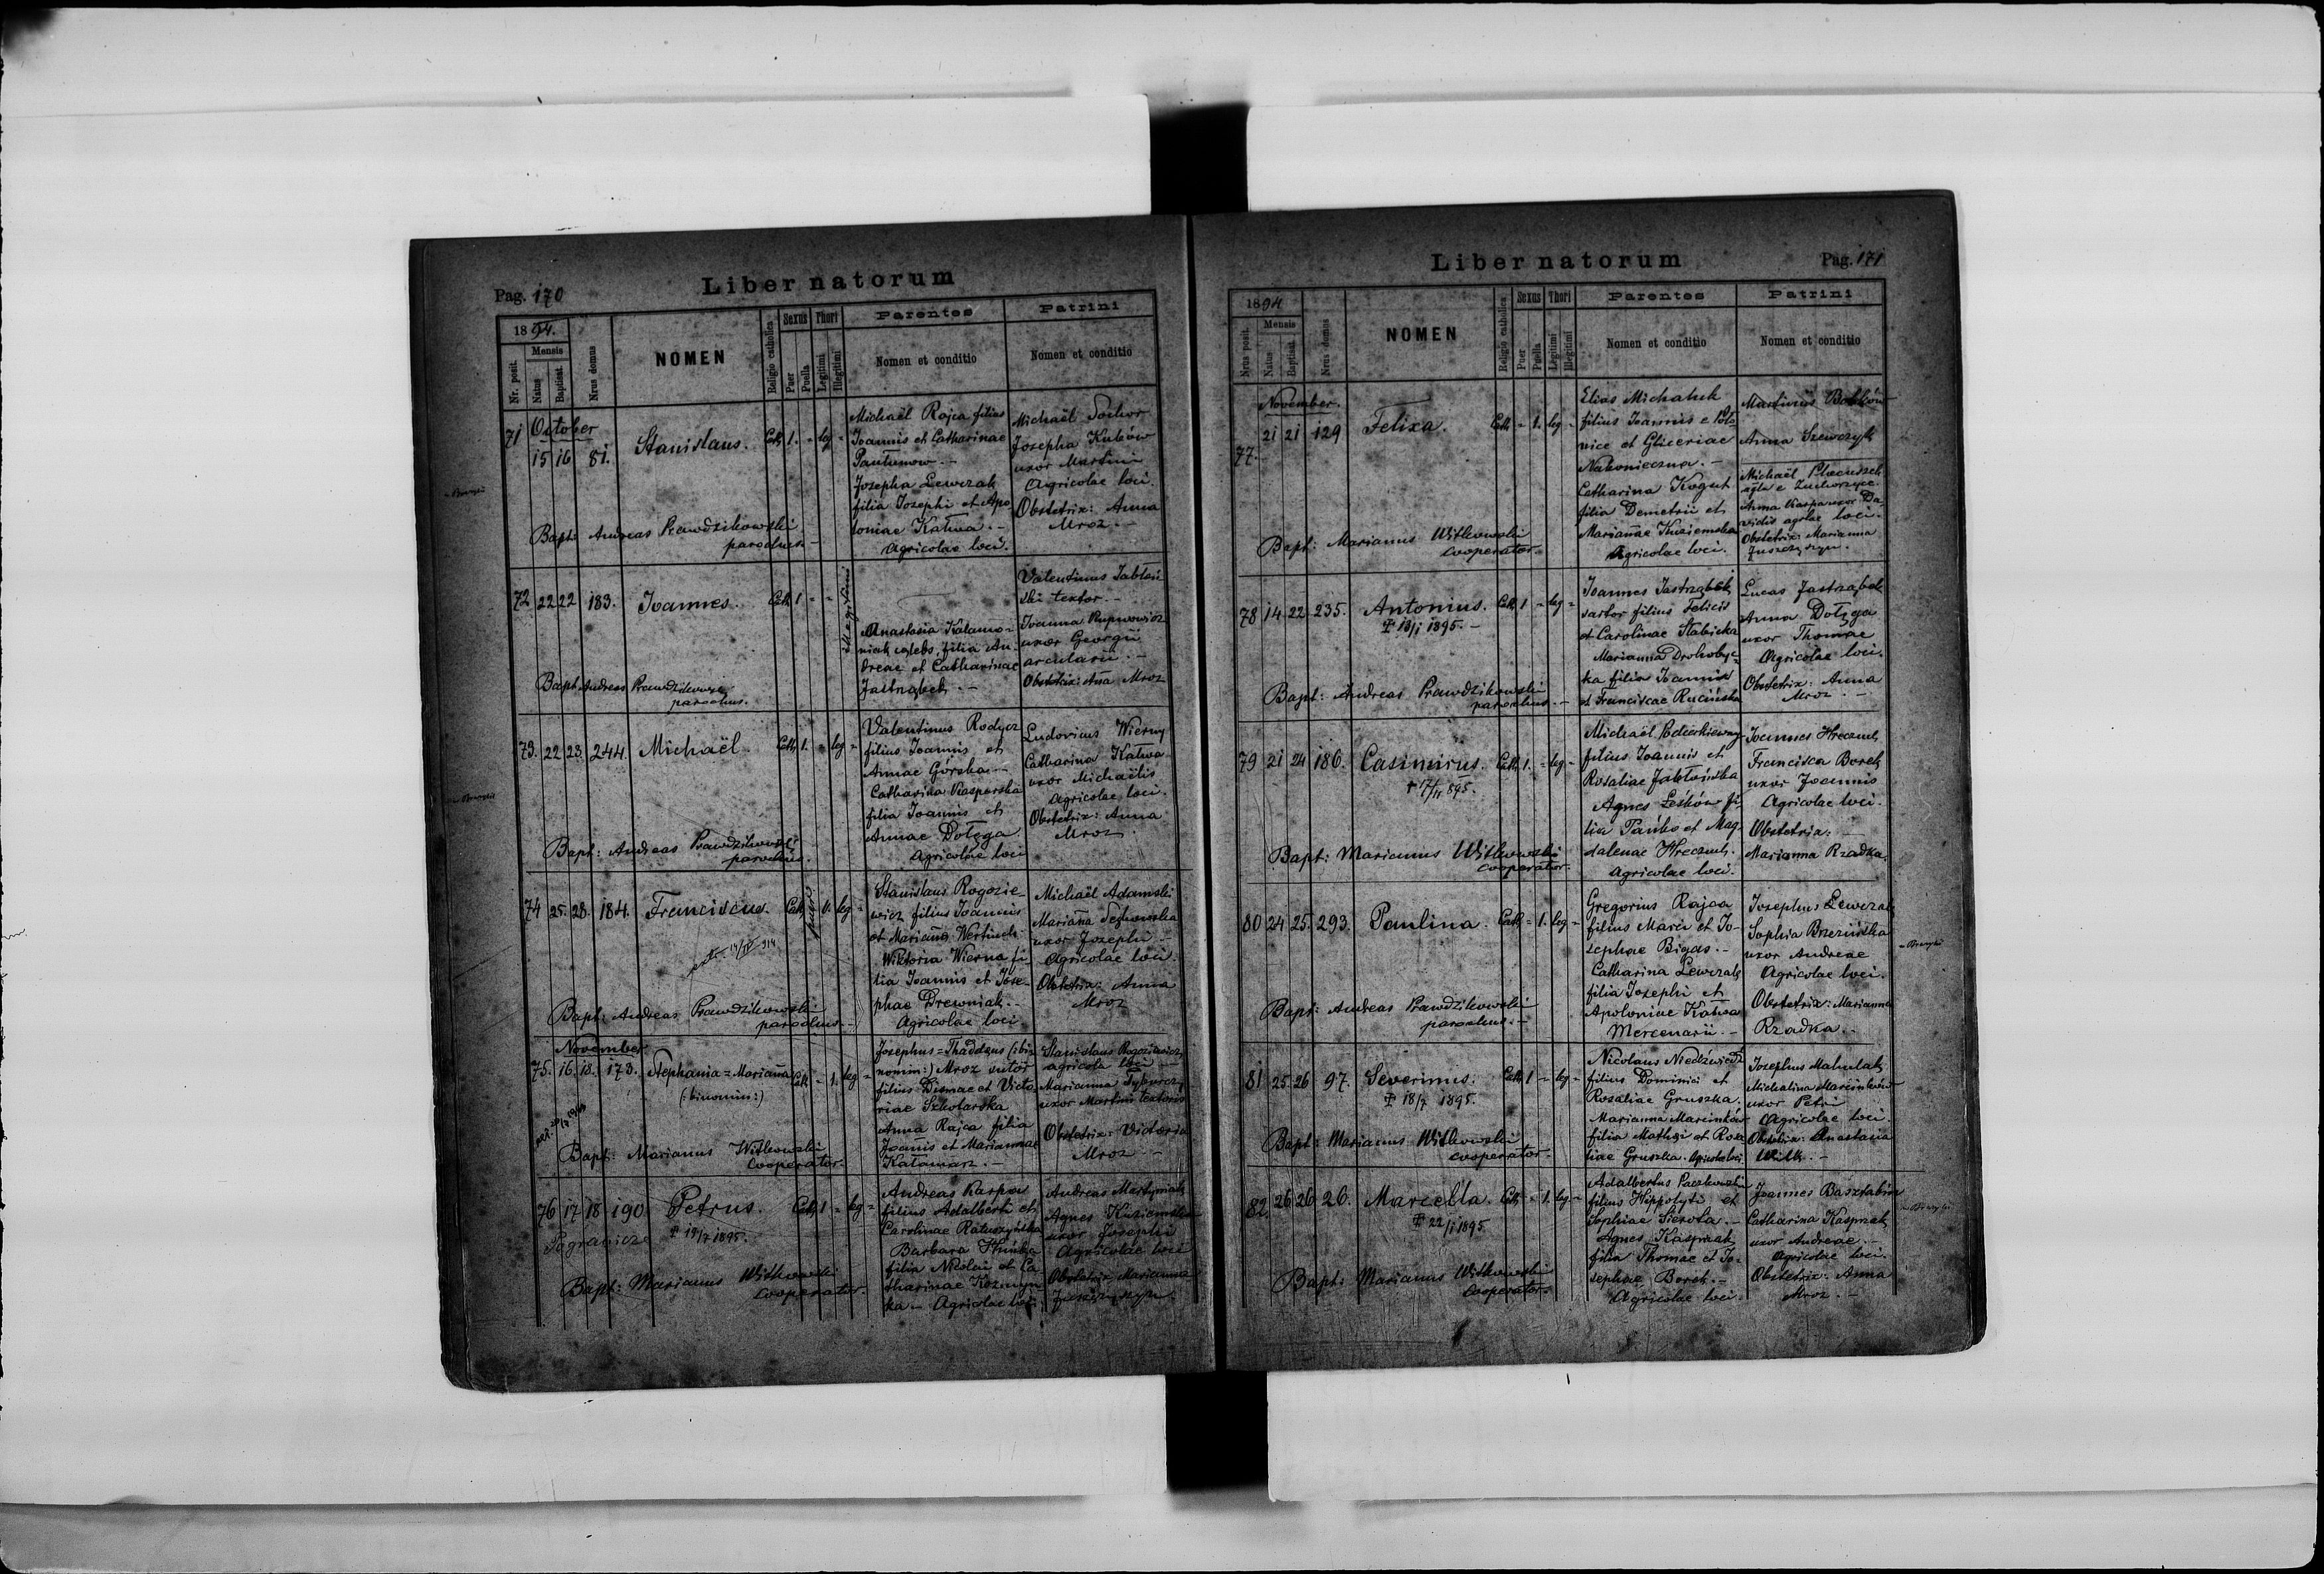 Pag. 170
Liber natorum
1894.
Nr. posit.
Mensis
Natus
Baptisat.
Nrus domus
NOMEN
Religio catholica
Sexus
Puer
Puella
Thori
Legitimi
Illegitimi
Parentes
Nomen et conditio
Patrini
Nomen et conditio
October
71 15 16 81. Stanislaus. Cath. 1. - leg -
Michaël Rajca filius
Joannis et Catharinae
Josepha Lewczak
filia Josephi et Apo
loniae Kałwa. -
Agricolae loci.
Michaël Sochor
Josepha Kubów
uxor Martini
Agricolae loci.
Obstetrix: Anna
Mroz. -
Bapt: Andreas Prawdzikowski
parochus. -
72 22 22 183. Joannes. Cath. 1 - - illegitimi
Anastasia
niak coelebs, filia An-
dreae et Catharinae
Jastrząbek. -
Valentinus Jabłoń
ski textor. -
Joanna
uxor Georgii
arcularii. -
Obstetrix: Aña Mroz
Bapt. Andreas Prawdzikowski
parochus.
73. 22 23 244 Michaël. Cath. 1. - leg -
Valentinus Rodycz
filius Joannis et
Annae Górska. -
Catharina Kasperska
filia Joannis et
Annae Dołęga
Agricolae loci
Ludovicus Wierny
Catharina Kałwa
uxor Michaëlis
Agricolae loci.
Obstetrix: Anna
Mroz.
Bapt: Andreas Prawdzikowski
parochus.
74 25. 28. 184. Franciscus. Cath. leg -
Stanislaus Rogozie
wicz filius Joannis
et Mariaña
Wiktoria Wierna fi-
lia Joannis et Jose-
phae Drewniak. -
Agricolae loci
Michaël Adamski
Mariaña
uxor Josephi -
Agricolae loci.
Obstetrix: Anna
Mroz
Bapt: Andreas Prawdzikowski
parochus. -
November
75. 16. 18. 173. Stephania = Mariaña Cath. - 1. leg -
(:binomin:)
Josephus = Thaddeus (:bi-
nomin:) Mroz sutor
filius Dismae et Victo-
riae Szkolarska
Anna Rajca filia
Joañis et Mariannae
Kałamarz. -
Stanislaus Rogoziewicz
agricola loci -
Marianna
uxor Martini textoris
Obstetrix: Victoria
Mroz -
Bapt: Marianus Witkowski
Cooperator. -
76 17 18 190 Petrus. Cath. 1 - leg -
✝ 19/7 1895.
Andreas Karpa
filius Adalberti et
Carolinae Ratuszyńska
Barbara
filia Nicolai et Ca-
tharinae
ka - Agricolae loci
Andreas Martyniak
Agnes
uxor Josephi
Agricolae loci
Obstetrix Marianna
Bapt: Marianus Witkowski
Cooperator. -
Liber natorum
Pag. 171
1894
Nrus posit.
Mensis
Natus
Baptisat
Nrus domus
NOMEN
Religio catholica
Sexus
Puer
Puella
Thori
Legitimi
Illegitimi
Parentes
Nomen et conditio
Patrini
Nomen et conditio
November.
77. 21 21 129 Felixa. Cath. - 1. leg -
Elias Michaluk
filius Joannis e
et Gliceriae
Nakonieczna. -
Catharina Kogut
filia Demetrii et
Mariañae Kuziemska
Agricolae loci.
Martinus
Anna Szewczyk
Michaël
Anna uxor Da-
vidis agolae loci.
Obstetrix: Marianna
Juszczyszyn.
Bapt: Marianus Witkowski
Cooperator. -
78 14 22 235. Antonius. Cath. 1 - leg -
✝ 18/1 1895. -
Joannes Jastrząbek
sartor filius Felicis
et Carolinae Słabicka
Marianna Drohobyc-
ka filia Joannis
et Franciscae Rucińska
Lucas Jastrząbek
Anna Dołęga
uxor Thomae
Agricolae loci.
Obstetrix: Anna
Mroz. -
Bapt: Andreas Prawdzikowski
parochus. -
79 21 24 186. Casimirus. Cath. 1. - leg -
Michaël
filius Joannis et
Rosaliae Jabłońska
Agnes Leśków fi-
lia Pańko et Mag-
dalenae Hreczuch.
Agricolae loci.
Joannes Hreczuch
Francisca Borek
uxor Joannis
Agricolae loci.
Obstetrix: -
Marianna Rzadka.
Bapt: Marianus Witkowski
Cooperator. -
80 24 25. 293. Paulina. Cath. - 1. leg -
Gregorius Rajca
filius Marci et Jo-
sephae Bigas. -
Catharina Lewczak
filia Josephi et
Apoloniae Kałwa
Mercenarii. -
Josephus Lewczak
Sophia Brzezińska
uxor Andreae
Agricolae loci.
Obstetrix: Marianna
Rzadka. -
Bapt: Andreas Prawdzikowski
parochus. -
81 25 26 97. Severinus. Cath. 1 - leg -
✝ 18/7 1895.
Nicolaus Niedźwiedź
filius Dominici et
Rosaliae Gruszka.
Marianna Marcinków
filia Mathaei et Rosa
liae Gruszka. Agricolae loci
Josephus
Michalina Marcinków
uxor Petri
Agricolae loci
Obstetrix: Anastasia
Wilk. -
Bapt: Marianus Witkowski
Cooperator. -
82 26 26 26. Marcella. Cath. - 1. leg -
✝ 22/1 1895.
Adalbertus Paczkowski
filius Hippolyti et
Sophiae Sierota. -
Agnes Kasprzak
filia Thomae et Jo-
sephae Borek. -
Agricolae loci.
Joannes
Catharina Kasprzak
uxor Andreae. -
Agricolae loci.
Obstetrix: Anna
Mroz. -
Bapt: Marianus Witkowski
Cooperator. -